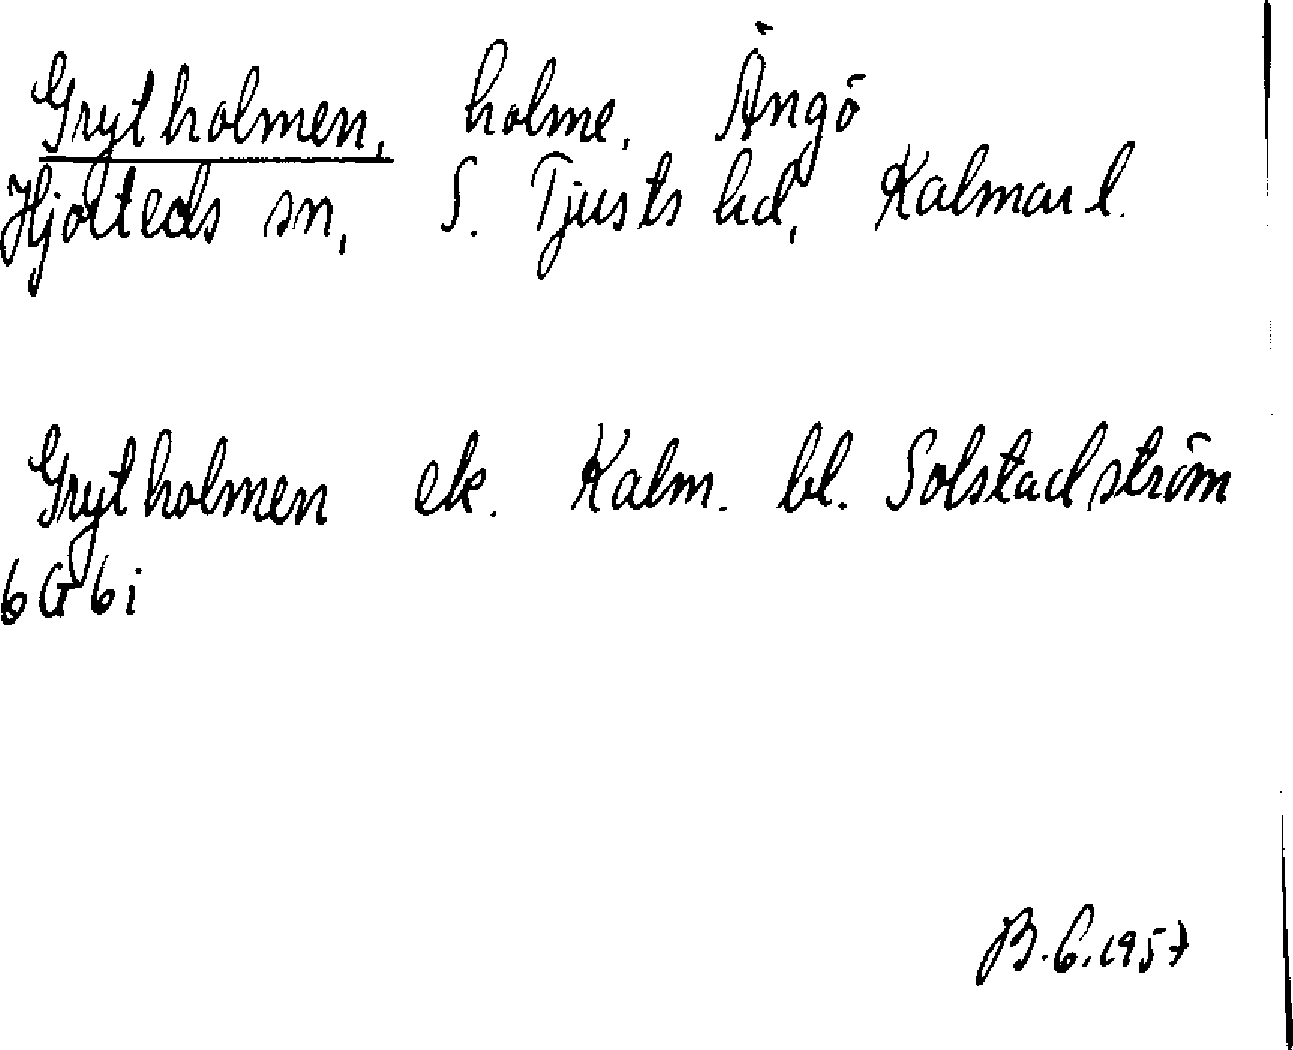 Grytholmen, holme, Ängö
Hjorteds sn, S. Tjusts hd, Kalmar l.
Grytholmen ek. Kalm. bl. Solstadström
6G6i
B.C. 1957